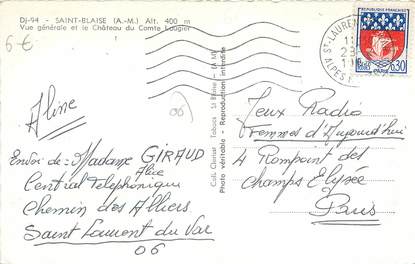 Dj-94 - SAINT-BLAISE (A.-M.) Alt. 400 m
Vue générale et le Château du Comte Laugier
6€
06
Aline
Envoi de = Madame GIRAUD
Alice
Central Téléphonique
Chemin des Alliers
Saint Laurent du Var
06
Photo véritable - Reproduction interdite
ST-LAURENT
ALPES
REPUBLIQUE FRANÇAISE
0,30
PARIS
Jeux Radio
Femmes d'Aujourd'hui
4 Rompoint des
Champs Elysée
Paris